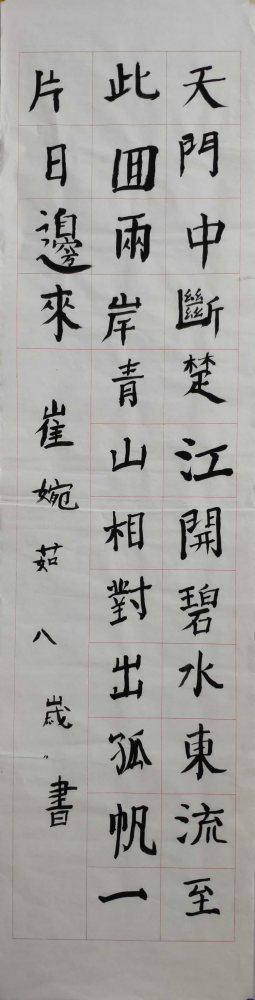 天門中斷楚江開碧水東流至
此囬兩岸青山相對出孤帆一
片日邊來 崔婉茹八歲書